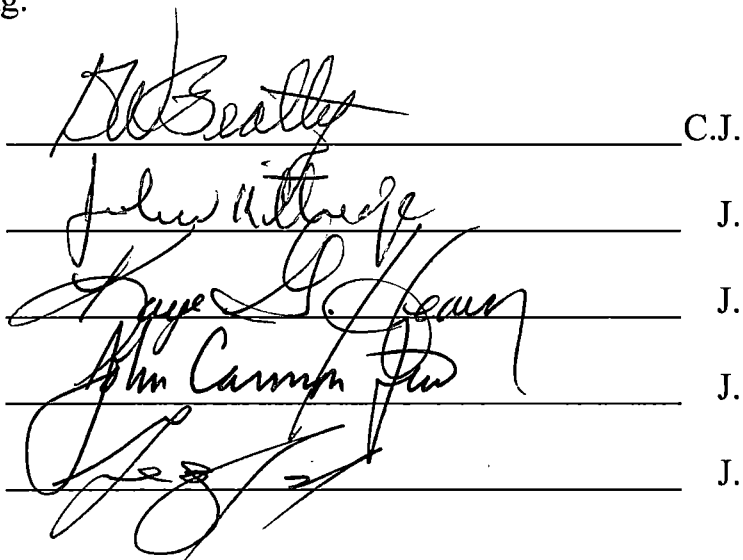 g.
DW Beatty C.J.
John Kittredge J.
Kaye G. Hearn J.
John Cannon Few J.
J.